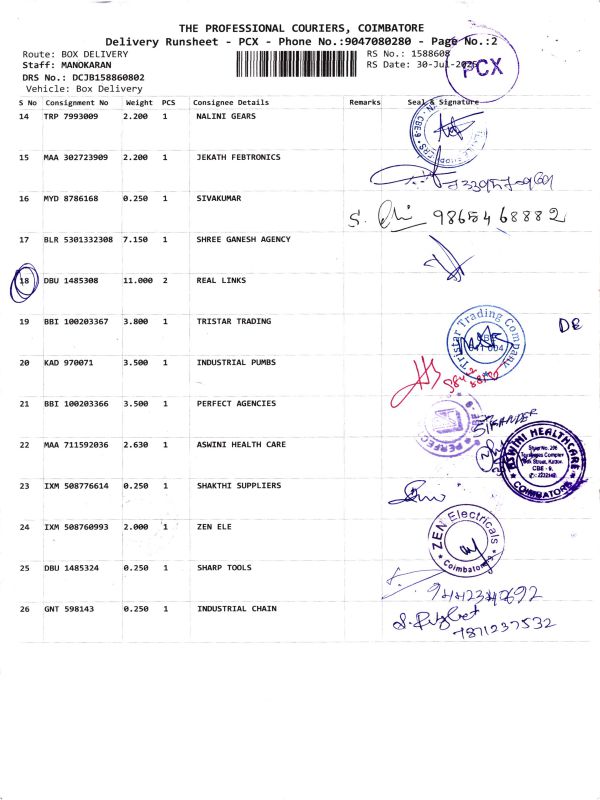 THE PROFESSIONAL COURIERS, COIMBATORE
Delivery Runsheet - PCX - Phone No.:9047080280 - Page No.:2
Route: BOX DELIVERY RS No.: 1588608
Staff: MANOKARAN RS Date: 30-Jul-2025
PCX
DRS No.: DCJB158860802
Vehicle: Box Delivery
S No Consignment No Weight PCS Consignee Details Remarks Seal & Signature
14 TRP 7993009 2.200 1 NALINI GEARS
CBE-9
15 MAA 302723909 2.200 1 JEKATH FEBTRONICS
16 MYD 8786168 0.250 1 SIVAKUMAR
S. 9865468882
17 BLR 5301332308 7.150 1 SHREE GANESH AGENCY
18 DBU 1485308 11.000 2 REAL LINKS
19 BBI 100203367 3.800 1 TRISTAR TRADING
Tristar Trading Company
DE
20 KAD 970071 3.500 1 INDUSTRIAL PUMBS
21 BBI 100203366 3.500 1 PERFECT AGENCIES
PERFECT
22 MAA 711592036 2.630 1 ASWINI HEALTH CARE
ASWINI HEALTHCARE
CBE - 9.
COIMBATORE
23 IXM 508776614 0.250 1 SHAKTHI SUPPLIERS
24 IXM 508760993 2.000 1 ZEN ELE
ZEN Electricals
Coimbatore
25 DBU 1485324 0.250 1 SHARP TOOLS
26 GNT 598143 0.250 1 INDUSTRIAL CHAIN
7871237532